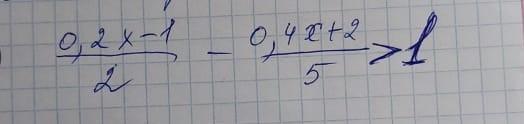 (0,2x-1)/2 - (0,4x+2)/5 > 1